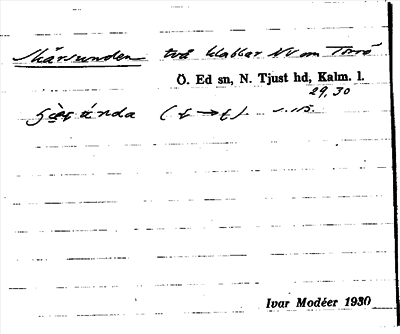 Skärsunden två klabbar NV om Torrö
Ö. Ed sn, N. Tjust hd, Kalm. l.
29, 30
Ivar Modéer 1930